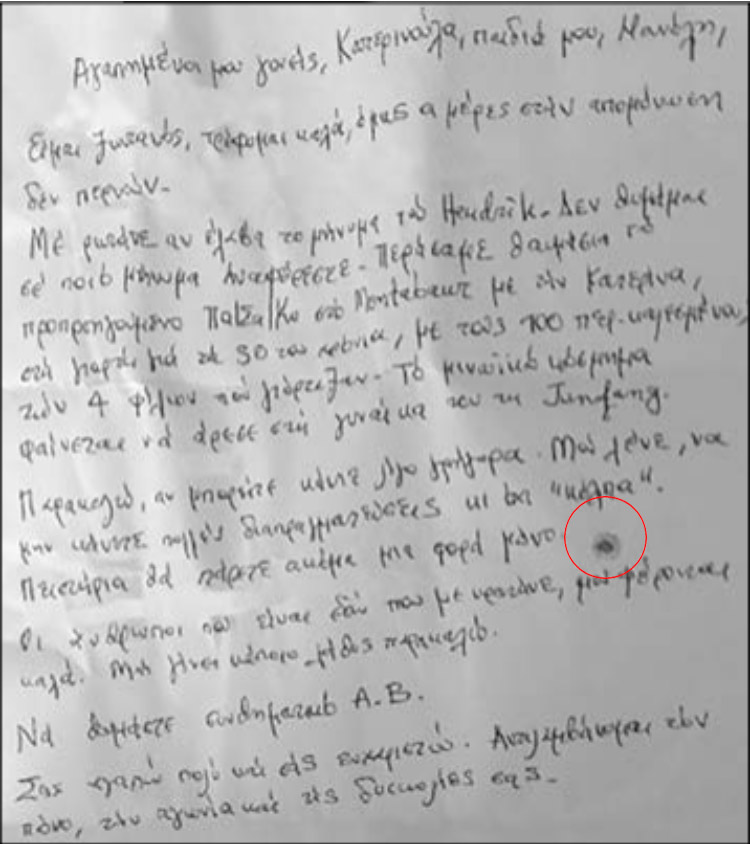 Αγαπημένοι μου γονείς, Κατερινούλα, παιδιά μου, Μανώλη,
Είμαι ζωντανός, τρέφομαι καλά, όμως οι μέρες στην απομόνωση
δεν περνούν.
Με ρωτάνε αν έλαβα το μήνυμα του Hendrik. Δεν θυμάμαι
σε ποιό μήνυμα αναφέρεστε. Περάσαμε θαυμάσια το
προπροηγούμενο Πάσχα στο Montabaur με την Κατερίνα,
στη γιορτή για τα 50 του χρόνια, με τους 100 περ. καλεσμένους,
των 4 φίλων που γιόρταζαν. Το μινωϊκό κόσμημα
φαίνεται να άρεσε στη γυναίκα του τη Junfang.
Παρακαλώ, αν μπορείτε κάντε λίγο γρήγορα. Μου λένε, να
μην κάνετε πολλές διαπραγματεύσεις κι όχι "κόλπα".
Πειστήρια θα πάρετε ακόμα μια φορά μόνο.
Οι άνθρωποι που είναι εδώ που με κρατάνε, μου φέρονται
καλά. Μην γίνει κάποιο λάθος παρακαλώ.
Να θυμάστε συνθηματικό Α.Β.
Σας αγαπώ πολύ και σας ευχαριστώ. Αντιλαμβάνομαι τον
πόνο, την αγωνία και τις δυσκολίες σας.